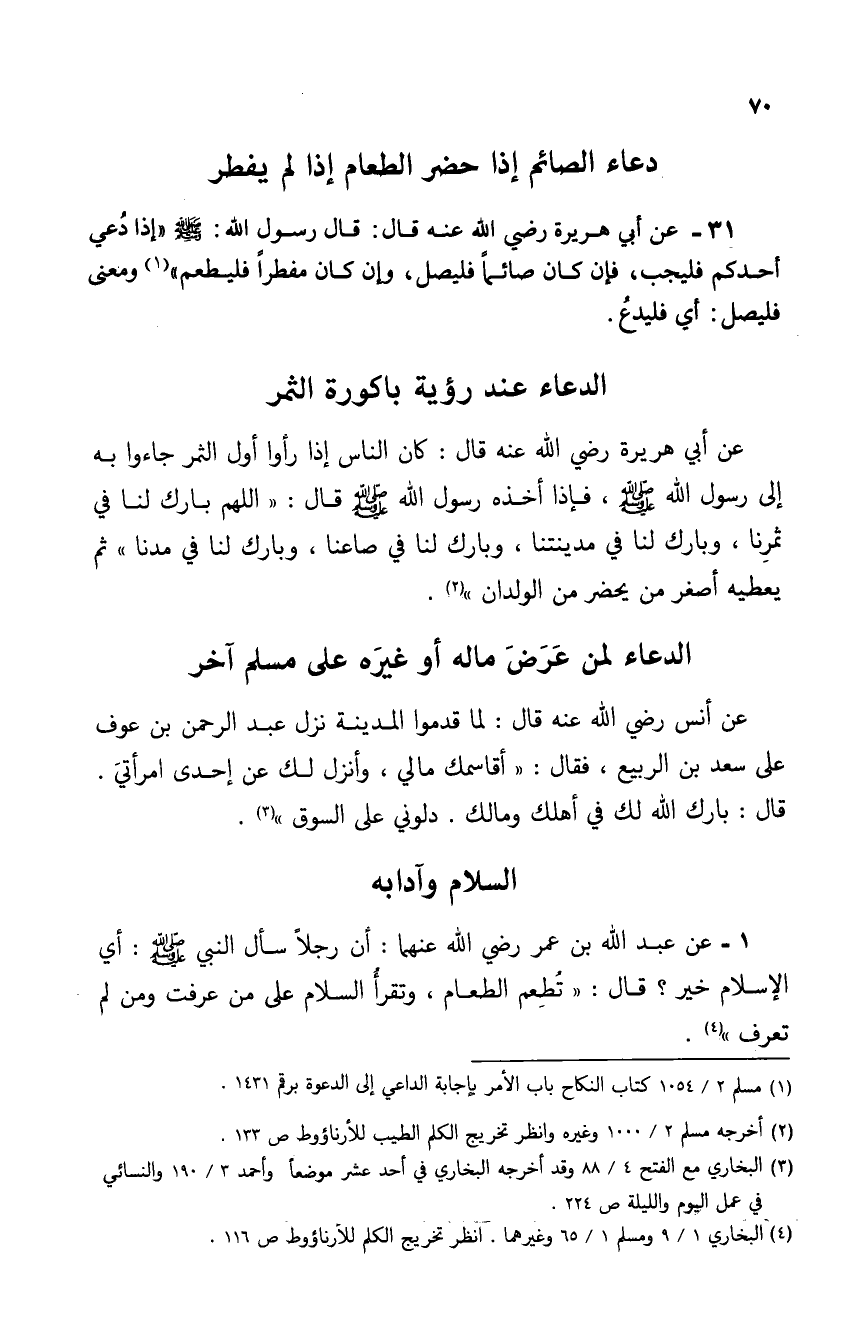 ٧٠
دعاء الصائم إذا حضر الطعام إذا لم يفطر
٣١ - عن أبي هريرة رضي الله عنه قال: قال رسول الله: ﷺ «إذا دُعي
أحدكم فليجب، فإن كان صائماً فليصل، وإن كان مفطراً فليطعم»(١) ومعنى
فليصل: أي فليدعُ.
الدعاء عند رؤية باكورة الثمر
عن أبي هريرة رضي الله عنه قال : كان الناس إذا رأوا أول الثمر جاءوا به
إلى رسول الله ﷺ ، فإذا أخذه رسول الله ﷺ قال : « اللهم بارك لنا في
ثمرِنا ، وبارك لنا في مدينتنا ، وبارك لنا في صاعنا ، وبارك لنا في مدنا » ثم
يعطيه أصغر من يحضر من الولدان »(٢) .
الدعاء لمن عَرَضَ ماله أو غيرَه على مسلم آخر
عن أنس رضي الله عنه قال : لما قدموا المدينة نزل عبد الرحمن بن عوف
على سعد بن الربيع ، فقال : « أقاسمك مالي ، وأنزل لك عن إحدى امرأتيَ .
قال : بارك الله لك في أهلك ومالك . دلوني على السوق »(٣) .
السلام وآدابه
١ - عن عبد الله بن عمر رضي الله عنهما : أن رجلاً سأل النبي ﷺ : أي
الإسلام خير ؟ قال : « تُطعِم الطعام ، وتقرأُ السلام على من عرفت ومن لم
تعرف »(٤) .
(١) مسلم ٢ / ١٠٥٤ كتاب النكاح باب الأمر بإجابة الداعي إلى الدعوة برقم ١٤٣١ .
(٢) أخرجه مسلم ٢ / ١٠٠٠ وغيره وانظر تخريج الكلم الطيب للأرناؤوط ص ١٣٣ .
(٣) البخاري مع الفتح ٤ / ٨٨ وقد أخرجه البخاري في أحد عشر موضعاً وأحمد ٣ / ١٩٠ والنسائي
في عمل اليوم والليلة ص ٢٢٤ .
(٤) البخاري ١ / ٩ ومسلم ١ / ٦٥ وغيرهما . انظر تخريج الكلم للأرناؤوط ص ١١٦ .